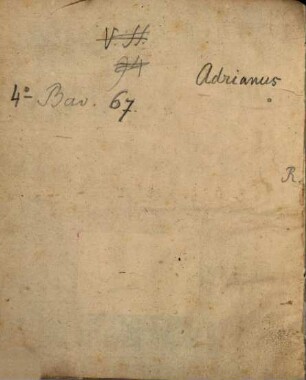 V. SS.
94
Adrianus
4° Bav. 67.
R.